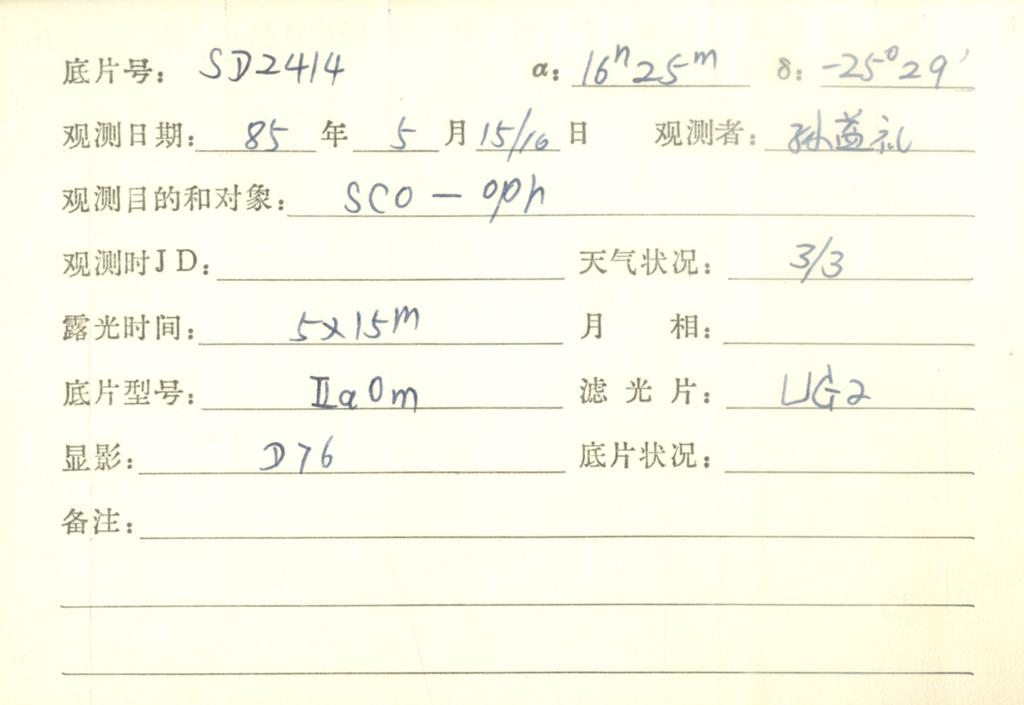 底片号: SD2414 α: 16ʰ25ᵐ δ: -25°29′
观测日期: 85 年 5 月 15/16 日 观测者: 孙益礼
观测目的和对象: SCO — oph
观测时JD: 天气状况: 3/3
露光时间: 5×15ᵐ 月 相:
底片型号: ⅡaOm 滤 光 片: UG2
显影: D76 底片状况:
备注: